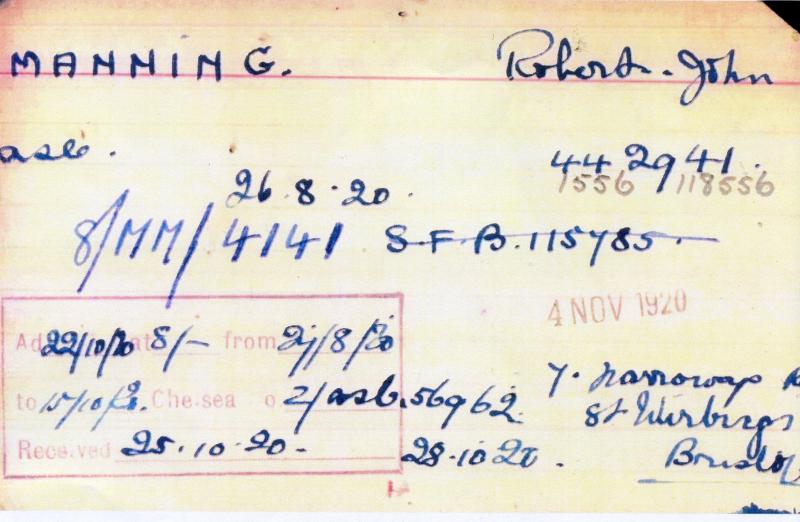 MANNING. Robert. John
asb. 442941.
1556 118556
26.8.20.
8/MM/4141 S.F.B. 115785
4 NOV 1920
22/10/20 8/- from 2/8/20
to 15/10/20. Chelsea 2/asb.56962.
7. Narroways
St Werburgs
Received 25.10.20. 28.10.20. Bristol